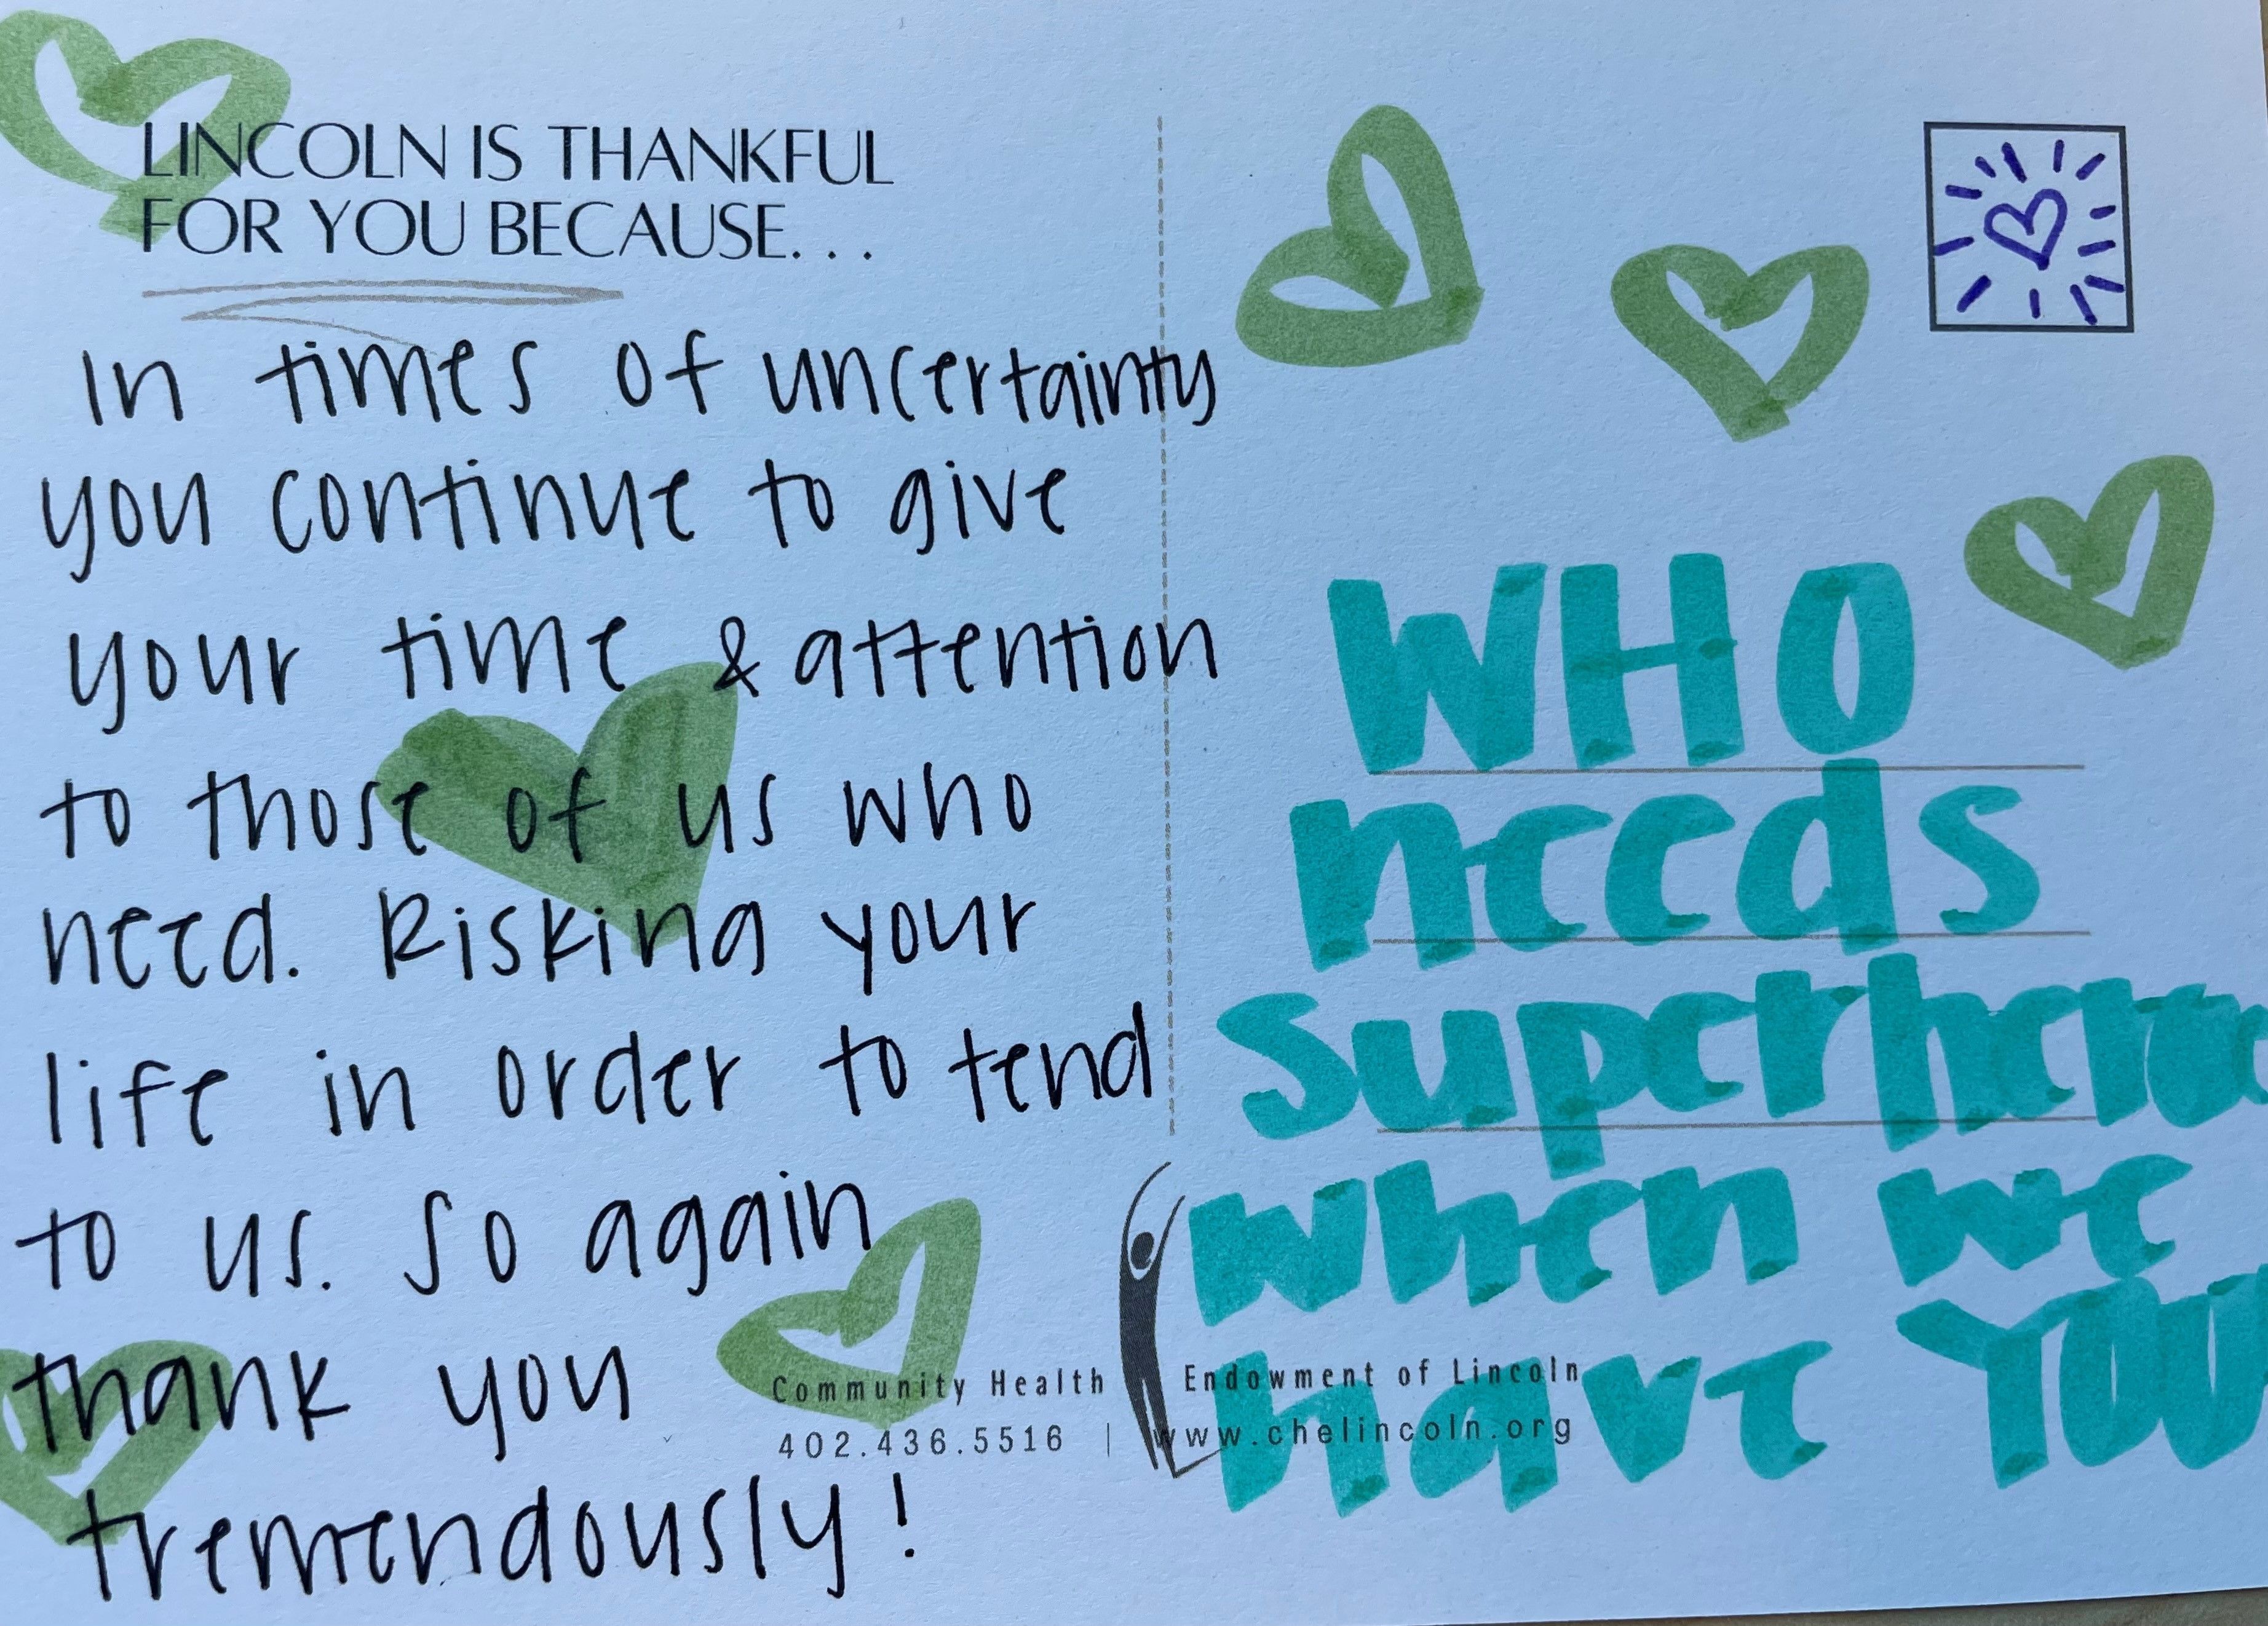 LINCOLN IS THANKFUL
FOR YOU BECAUSE...
In times of uncertainty
you continue to give
your time & attention
to those of us who
need. Risking your
life in order to tend
to us. So again
thank you
tremendously!
WHO
needs
superheroes
when we
have YOU
Community Health Endowment of Lincoln
402.436.5516 | www.chelincoln.org